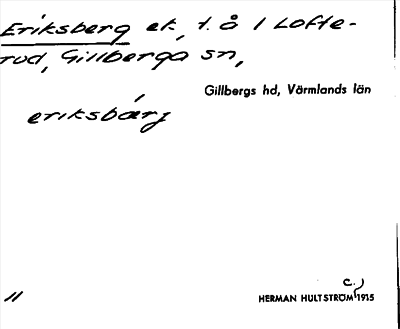 Eriksberg ek, t. å 1 Lofte-
rud, Gillberga sn,
Gillbergs hd, Värmlands län
eriksbærj
c.)
11
HERMAN HULTSTRÖM 1915